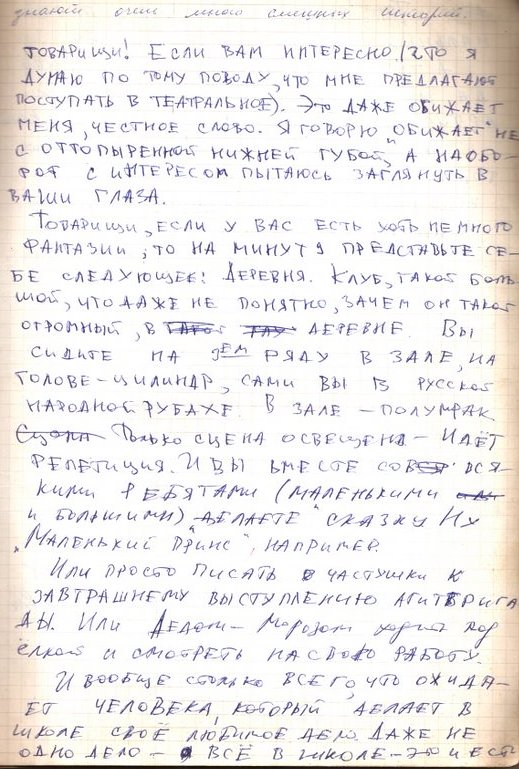 знают очень много смешных историй.
ТОВАРИЩИ! ЕСЛИ ВАМ ИНТЕРЕСНО (ЧТО Я
ДУМАЮ ПО ТОМУ ПОВОДУ, ЧТО МНЕ ПРЕДЛАГАЮТ
ПОСТУПАТЬ В ТЕАТРАЛЬНОЕ). ЭТО ДАЖЕ ОБИЖАЕТ
МЕНЯ, ЧЕСТНОЕ СЛОВО. Я ГОВОРЮ „ОБИЖАЕТ" НЕ
С ОТТОПЫРЕННОЙ НИЖНЕЙ ГУБОЙ, А НАОБО-
РОТ С ИНТЕРЕСОМ ПЫТАЮСЬ ЗАГЛЯНУТЬ В
ВАШИ ГЛАЗА.
ТОВАРИЩИ, ЕСЛИ У ВАС ЕСТЬ ХОТЬ НЕМНОГО
ФАНТАЗИИ, ТО НА МИНУТУ ПРЕДСТАВЬТЕ СЕ-
БЕ СЛЕДУЮЩЕЕ: ДЕРЕВНЯ. КЛУБ, ТАКОЙ БОЛЬ
ШОЙ, ЧТО ДАЖЕ НЕ ПОНЯТНО, ЗАЧЕМ ОН ТАКОЙ
ОГРОМНЫЙ, В ДЕРЕВНЕ. ВЫ
СИДИТЕ НА РЯДУ В ЗАЛЕ, НА
ГОЛОВЕ-ЦИЛИНДР, САМИ ВЫ В РУССКОЙ
НАРОДНОЙ РУБАХЕ. В ЗАЛЕ - ПОЛУМРАК
Сцена ТОЛЬКО СЦЕНА ОСВЕЩЕНА - ИДЁТ
РЕПЕТИЦИЯ. И ВЫ ВМЕСТЕ СО ВСЯ-
КИМИ РЕБЯТАМИ (МАЛЕНЬКИМИ
И БОЛЬШИМИ) ДЕЛАЕТЕ "СКАЗКУ НУ
„МАЛЕНЬКИЙ ПРИНЦ", НАПРИМЕР.
ИЛИ ПРОСТО ПИСАТЬ ЧАСТУШКИ К
ЗАВТРАШНЕМУ ВЫСТУПЛЕНИЮ АГИТБРИГА
ДЫ. ИЛИ ДЕДОМ-МОРОЗОМ ХОДИТЬ ПОД
ЁЛКОЙ И СМОТРЕТЬ НА СВОЮ РАБОТУ.
И ВООБЩЕ СТОЛЬКО ВСЕГО, ЧТО ОЖИДА-
ЕТ ЧЕЛОВЕКА, КОТОРЫЙ ДЕЛАЕТ В
ШКОЛЕ СВОЁ ЛЮБИМОЕ ДЕЛО. ДАЖЕ НЕ
ОДНО ДЕЛО - ВСЁ В ШКОЛЕ - ЭТО И ЕСТЬ